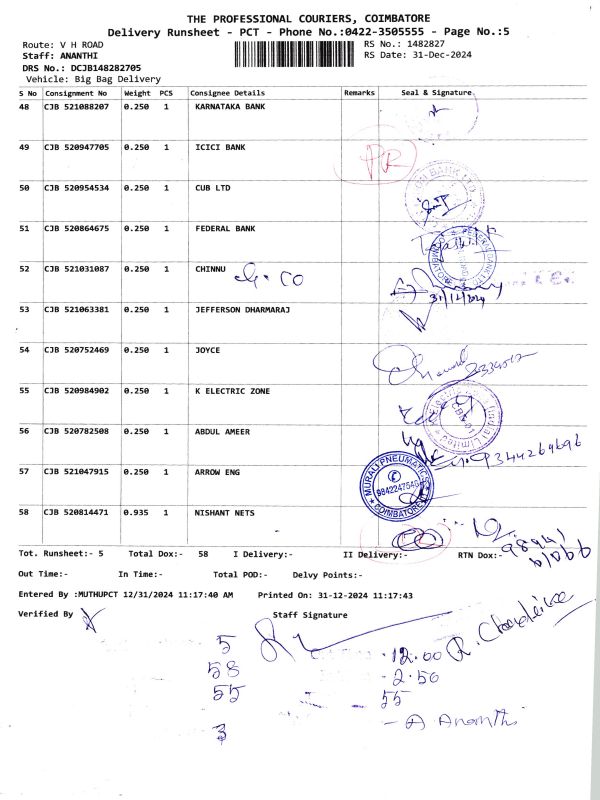 THE PROFESSIONAL COURIERS, COIMBATORE
Delivery Runsheet - PCT - Phone No.:0422-3505555 - Page No.:5
Route: V H ROAD RS No.: 1482827
Staff: ANANTHI RS Date: 31-Dec-2024
DRS No.: DCJB148282705
Vehicle: Big Bag Delivery
S No Consignment No Weight PCS Consignee Details Remarks Seal & Signature
48 CJB 521088207 0.250 1 KARNATAKA BANK
49 CJB 520947705 1 0.250 ICICI BANK
50 CJB 520954534 0.250 1 CUB LTD
51 CJB 520864675 0.250 1 FEDERAL BANK
52 CJB 521031087 0.250 1 CHINNU
31/12/2024
53 CJB 521063381 0.250 1 JEFFERSON DHARMARAJ
54 CJB 520752469 0.250 1 JOYCE
55 CJB 520984902 0.250 1 K ELECTRIC ZONE
56 CJB 520782508 0.250 1 ABDUL AMEER
9344269696
57 CJB 521047915 0.250 1 ARROW ENG
MURALI PNEUMATICS
COIMBATORE
58 CJB 520814471 0.935 1 NISHANT NETS
Tot. Runsheet:- 5 Total Dox:- 58 I Delivery:- II Delivery:- RTN Dox:-
Out Time:- In Time:- Total POD:- Delvy Points:-
Entered By :MUTHUPCT 12/31/2024 11:17:40 AM Printed On: 31-12-2024 11:17:43
Verified By Staff Signature
5 12.00
58 2.50
55 55
3 A Ananthi